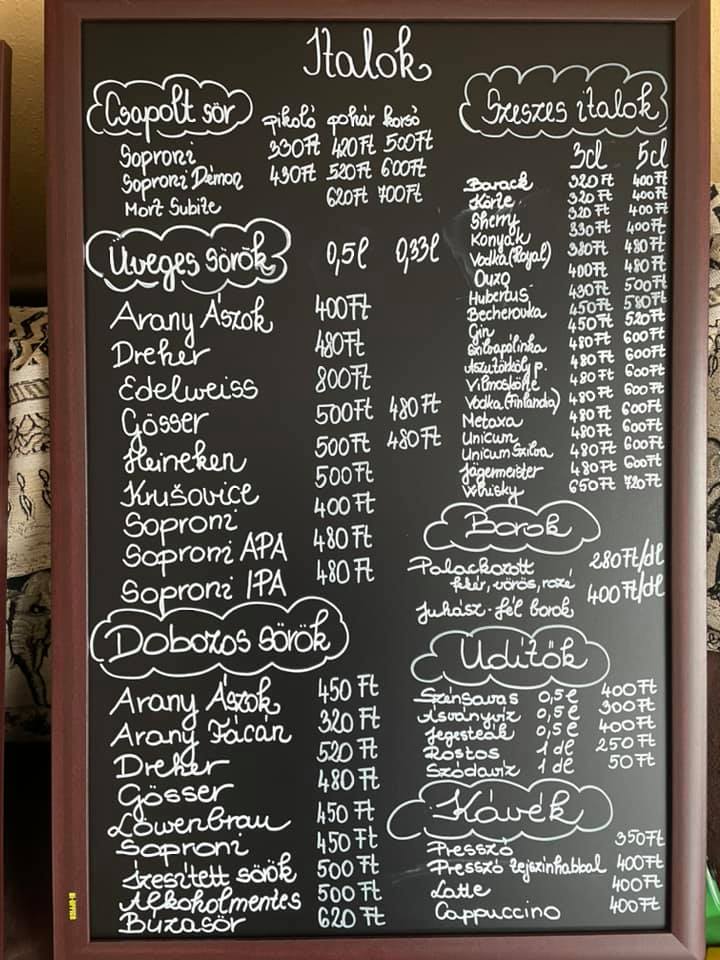 Italok
Csapolt sör pikoló pohár korsó
Soproni 330Ft 420Ft 500Ft
Soproni Démon 430Ft 520Ft 600Ft
Mort Subite 620Ft 700Ft
Üveges sörök 0,5l 0,33l
Arany Ászok 400Ft
Dreher 480Ft
Edelweiss 800Ft
Gösser 500Ft 480Ft
Heineken 500Ft 480Ft
Krušovice 500Ft
Soproni 400Ft
Soproni APA 480Ft
Soproni IPA 480Ft
Dobozos sörök
Arany Ászok 450 Ft
Arany Fácán 320 Ft
Dreher 520 Ft
Gösser 480 Ft
Löwenbrau 450 Ft
Soproni 450 Ft
Ízesített sörök 500 Ft
Alkoholmentes 500 Ft
Búzasör 620 Ft
Szeszes italok
3cl 5cl
Barack 320Ft 400Ft
Körte 320Ft 400Ft
Sherry 320Ft 400Ft
Konyak 330Ft 400Ft
Vodka (Royal) 380Ft 480Ft
Ouzo 400Ft 480Ft
Hubertus 430Ft 500Ft
Becherovka 450Ft 580Ft
Gin 450Ft 520Ft
Szilvapálinka 480Ft 600Ft
Aszútörköly p. 480Ft 600Ft
Vilmoskörte 480Ft 600Ft
Vodka (Finlandia) 480Ft 600Ft
Metaxa 480Ft 600Ft
Unicum 480Ft 600Ft
Unicum Szilva 480Ft 600Ft
Jägermeister 480Ft 600Ft
Whisky 650Ft 720Ft
Borok
Palackozott 280Ft/dl
fehér, vörös, rozé
Juhász-féle borok 400Ft/dl
Üdítők
Szénsavas 0,5l 400Ft
Ásványvíz 0,5l 300Ft
Jegesteák 0,5l 400Ft
Rostos 1 dl 250Ft
Szódavíz 1 dl 50Ft
Kávék
Presszó 350Ft
Presszó tejszínhabbal 400Ft
Latte 400Ft
Cappuccino 400Ft